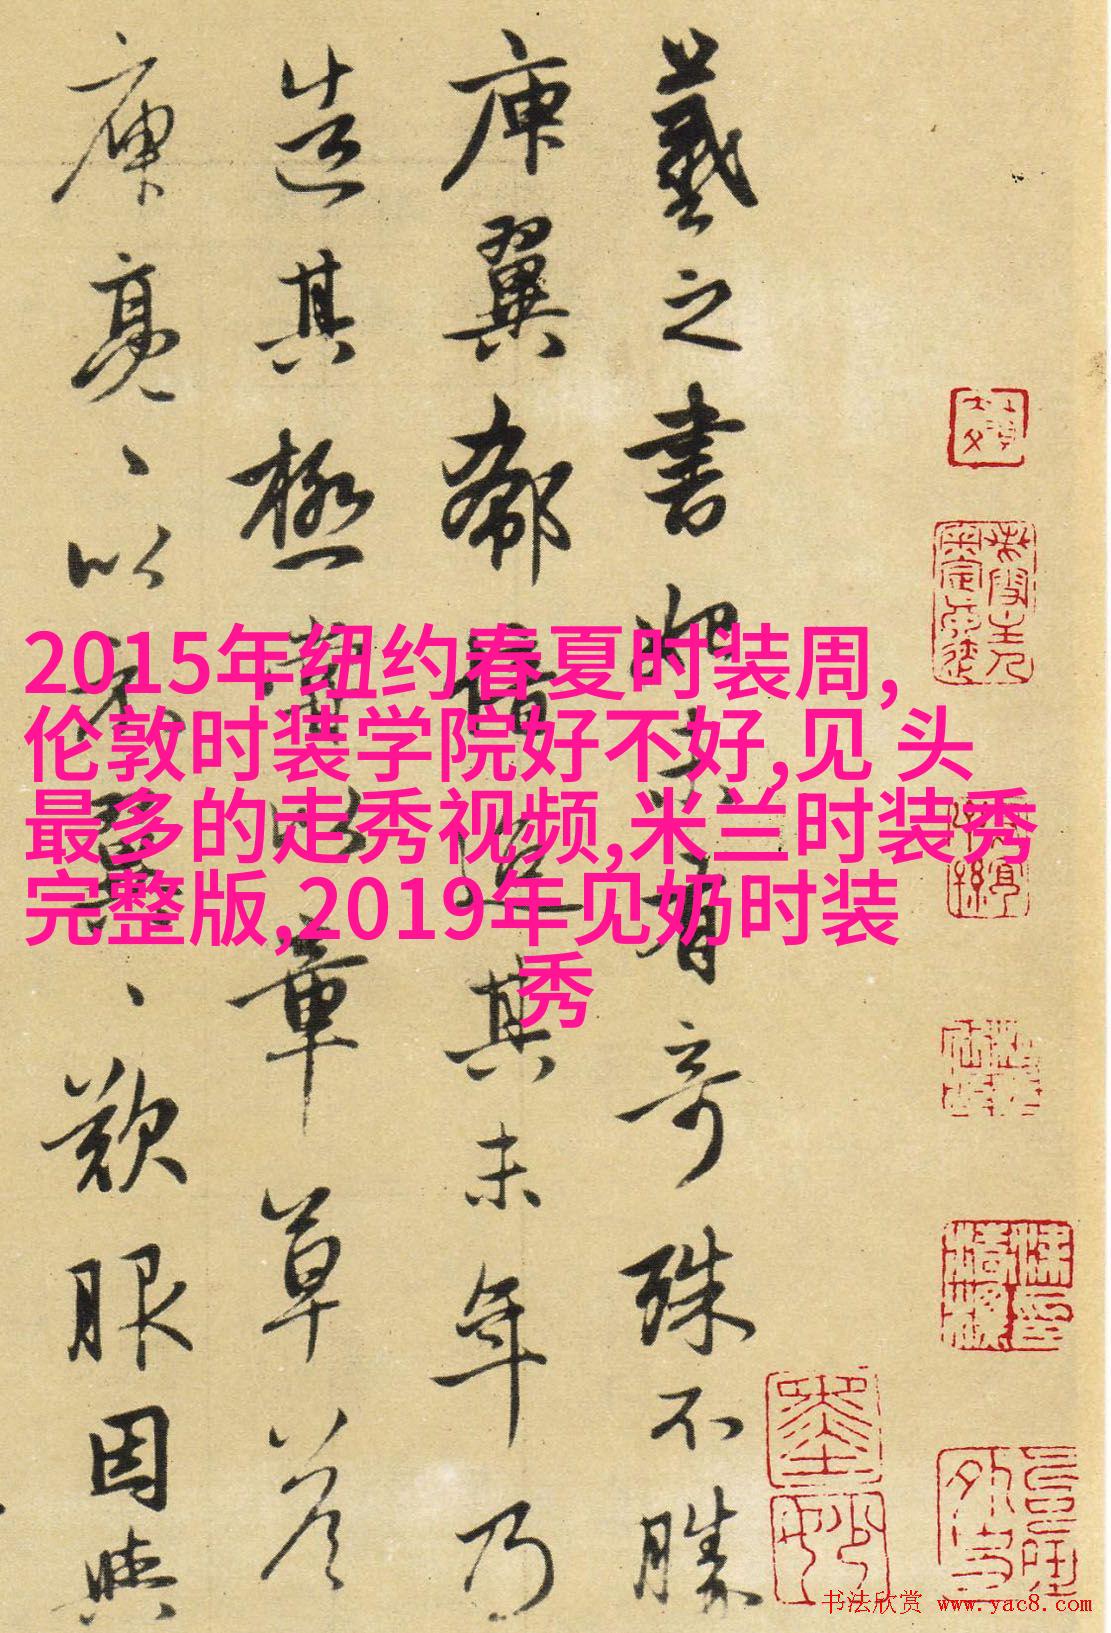 羲之書初未有奇殊不勝
庾翼郗愔迨其末年乃
造其極嘗以章草答
庾亮亮以示翼翼歎服因與
2015年纽约春夏时装周,
伦敦时装学院好不好,见 头
最多的走秀视频,米兰时装秀
完整版,2019年见奶时装
秀
书法欣赏 www.yac8.com